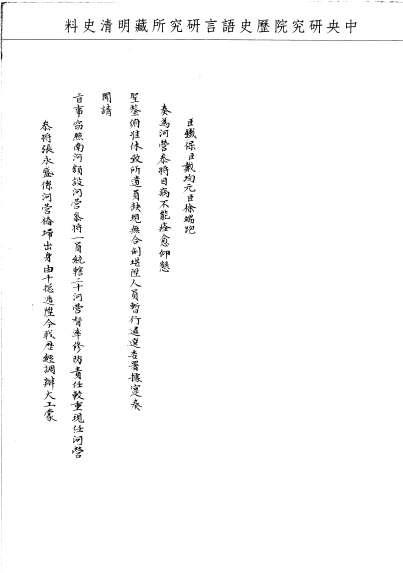 中央研究院歷史語言研究所藏明清史料
臣鐵保臣戴均元臣徐端跪
奏為河營叅將目病不能痊愈仰懇
聖鑒俯准休致所遺員缺現無合例堪陞人員暫行遴選委署據實奏
聞請
旨事竊照南河額設河營叅將一員統轄二十河營督率修防責任較重現任河營
叅將張永盛係河營樁埽出身由千總遞陞今職歷經調辦大工蒙